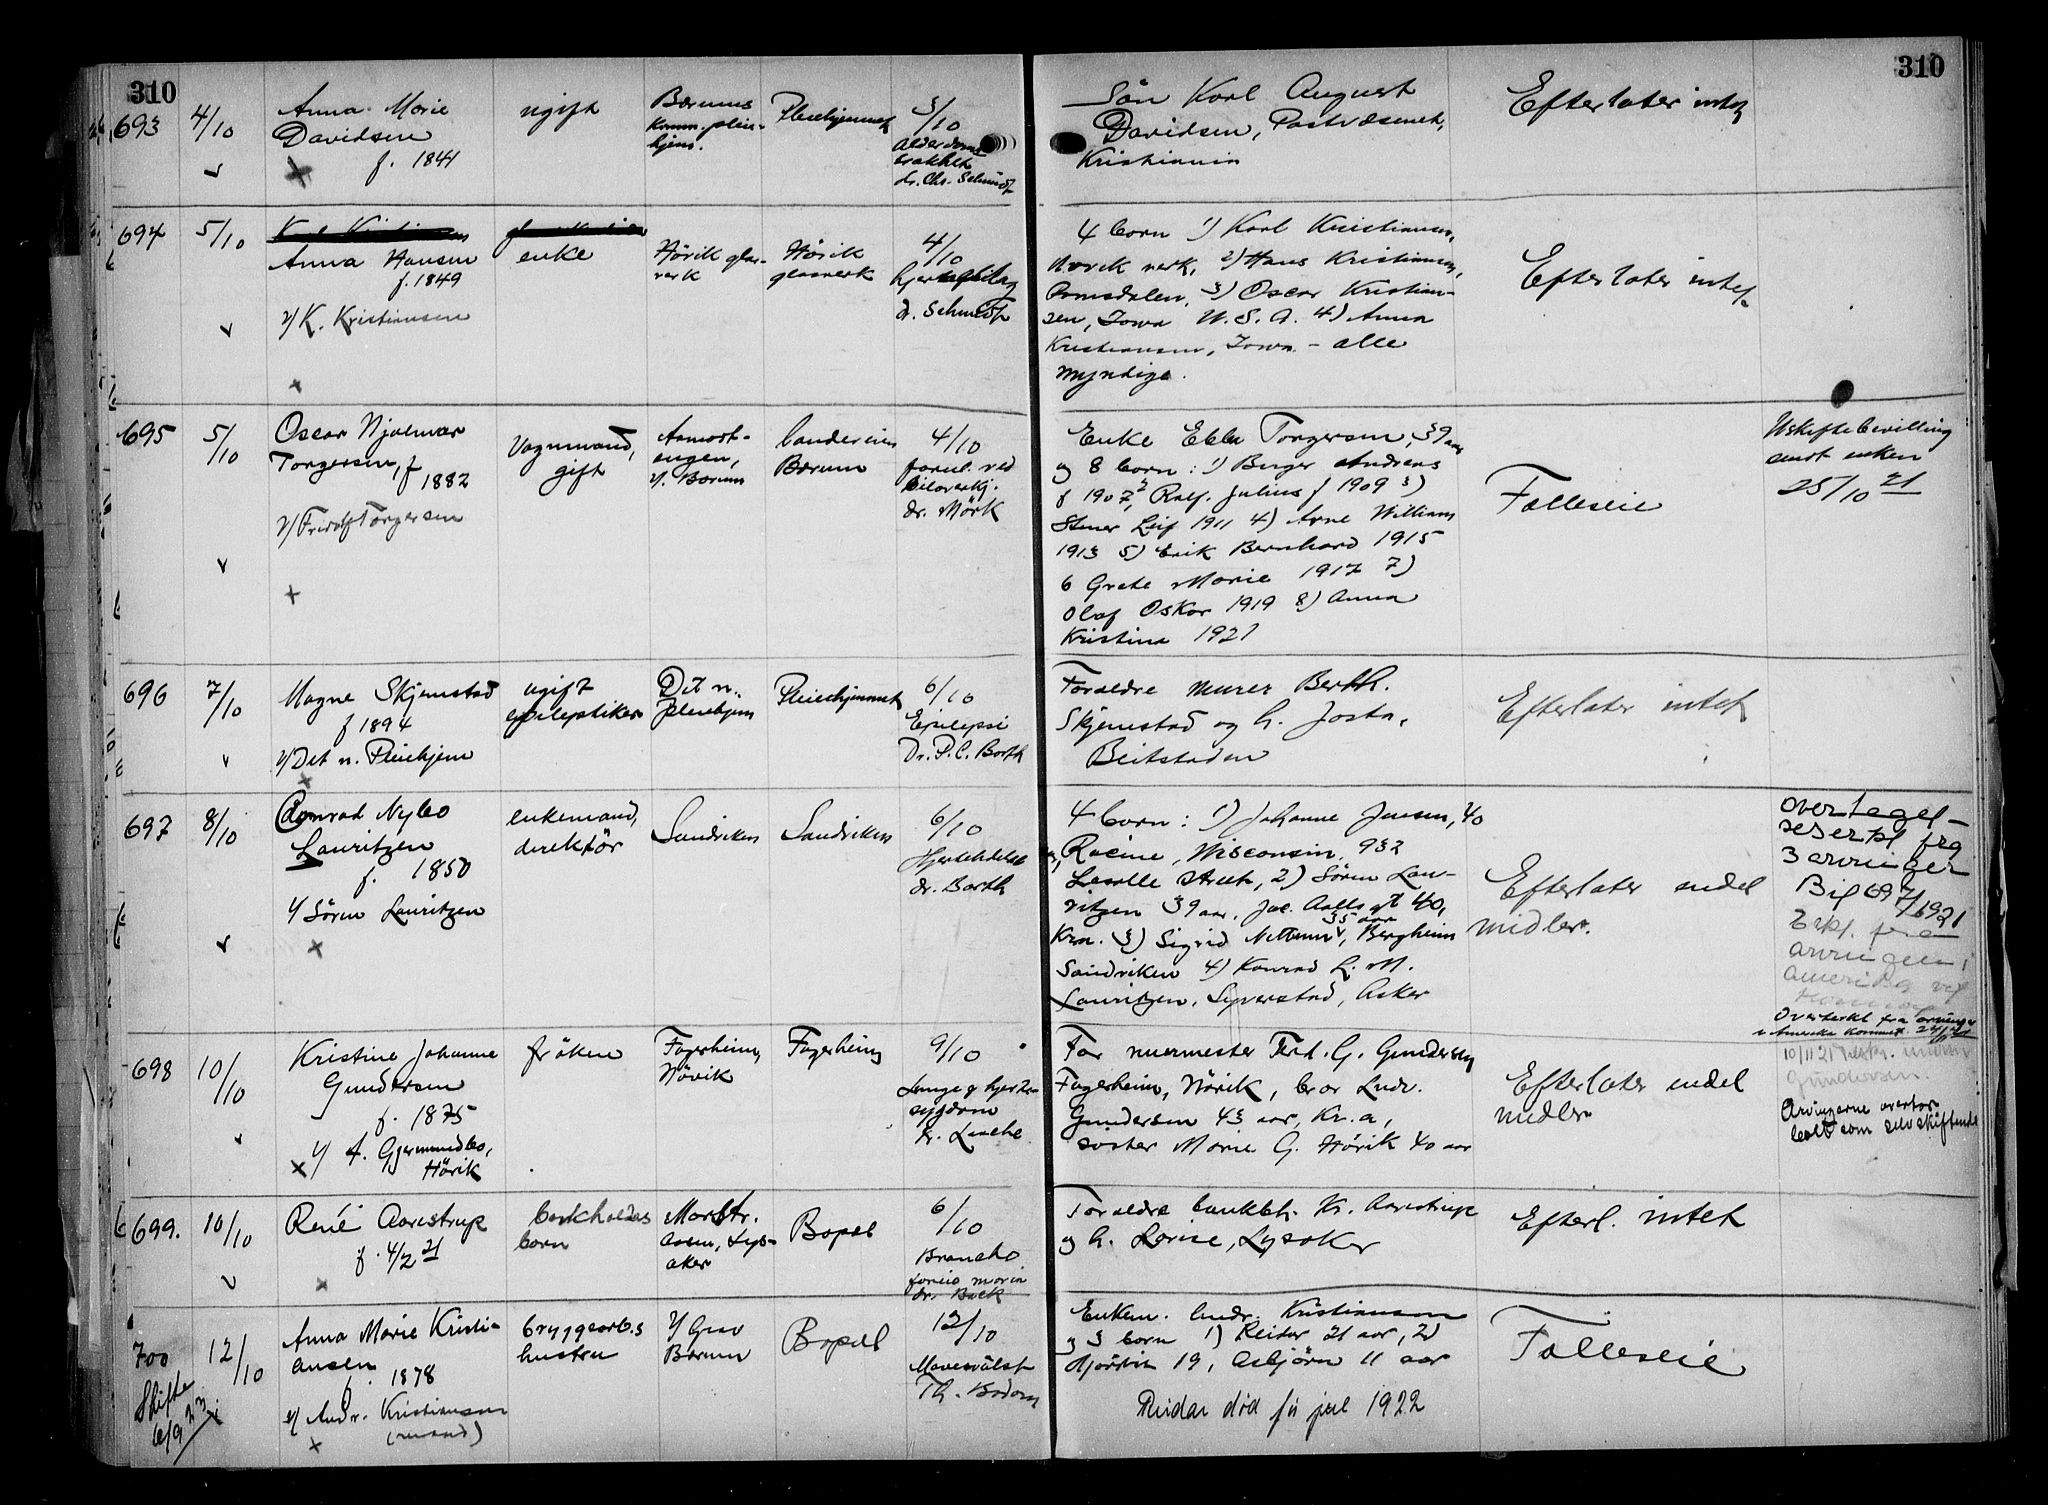 310
310
693
4/10
Anna Marie
Davidsen
f. 1841
ugift
Bærums
komm. pleie-
hjem.
Pleiehjemmet
3/10
Alderdoms
dr. Chr. Schmidt
Sön Karl August
Davidsen, Postvæsenet,
Kristiania
Efterlater intet
694
5/10
Anna Hansen
f. 1849
v/ K. Kristiansen
enke
Hövik glas-
verk
Hövik
glasverk
4/10
dr. Schmidt
4 børn 1) Karl Kristiansen,
Hövik verk, 2) Hans Kristiansen,
Romsdalen, 3) Oscar Kristian-
sen, Iowa U.S.A. 4) Anna
Kristiansen, Iowa - alle
myndige.
Efterlater intet
695
5/10
Oscar Hjalmar
Torgersen, f
1882
v/ Fridolf Torgersen
Vognmand,
gift
v. Bærum
Bærum
4/10
forul. ved
dr. Mörk
Enke Ebba Torgersen, 39 aar
og 8 børn: 1) Birger Andreas
f 1907, 2 Rolf Julius f 1909 3)
Stener Leif 1911 4) Arne William
1913 5) Erik Bernhard 1915
6 Grete Marie 1917 7)
Olaf Oskar 1919 8) Anna
Kristine 1921
Fælleseie
Uskiftebevilling
enken
25/10 21
696
7/10
Magne Skjemstad
f 1894
v/ Det n. Pleiehjem
ugift
epileptiker
Det n.
Pleiehjem
Pleiehjemmet
6/10
Epilepsi
Dr. P. C. Borth
Forældre murer Berth.
Skjemstad og h. Josta,
Beitstaden
Efterlater intet
697
8/10
Conrad Nybo
Lauritzen
f. 1850
v/ Sören Lauritzen
enkemand,
direktör
Sandviken
Sandviken
6/10
dr. Borth
4 børn: 1) Johanne Jensen, 40
Racine, Wisconsin, 932
Lasalle Street, 2) Sören Lau-
ritzen 39 aar, Jac. Aalls gt 40,
Krn. 3) Sigrid 35 aar, Bergheim
Sandviken 4) Konrad L. M.
Lauritzen, Syverstad, Asker
Efterlater endel
midler.
overtagel-
seserkl fra
3 arvinger
Bil 697/1921
Erkl. fra
arvingen i
Overterkl fra arvinger
i Amerika kommet
698
10/10
Kristine Johanne
Gundersen
f. 1875
v/ A. Gjermundbo,
Hövik
fröken
Fagerheim,
Hövik
Fagerheim
9/10
Lunge og hjerte-
sygdom
Far murmester Ferd. G. Gundersen
Fagerheim, Hövik, bror Ludv.
Gundersen 43 aar, Kr.a,
söster Marie G. Hövik 40 aar
Efterlater endel
midler
10/11 21
Gundersen.
Arvingerne overtar
boet som selvskiftende
699.
10/10
René Aarestrup
f. 4/2 21
barn
Lys-
aker
Bopæl
6/10
Broncho
dr. Bock
Forældre bankbh. Kr. Aarestrup
og h. Lovise, Lysaker
Efterl. intet
700
12/10
Skifte
6/9 23
Anna Marie Kristi-
ansen
f. 1878
v/ Andr. Kristiansen
(mand)
bryggearb.s
hustru
v/ Grav
Bærum
Bopæl
12/10
Th. Bodom
Enkem. Andr. Kristiansen
og 3 børn 1) Reidar 21 aar, 2)
Hjördis 19, Asbjörn 11 aar
Reidar död juli 1922
Fælleseie